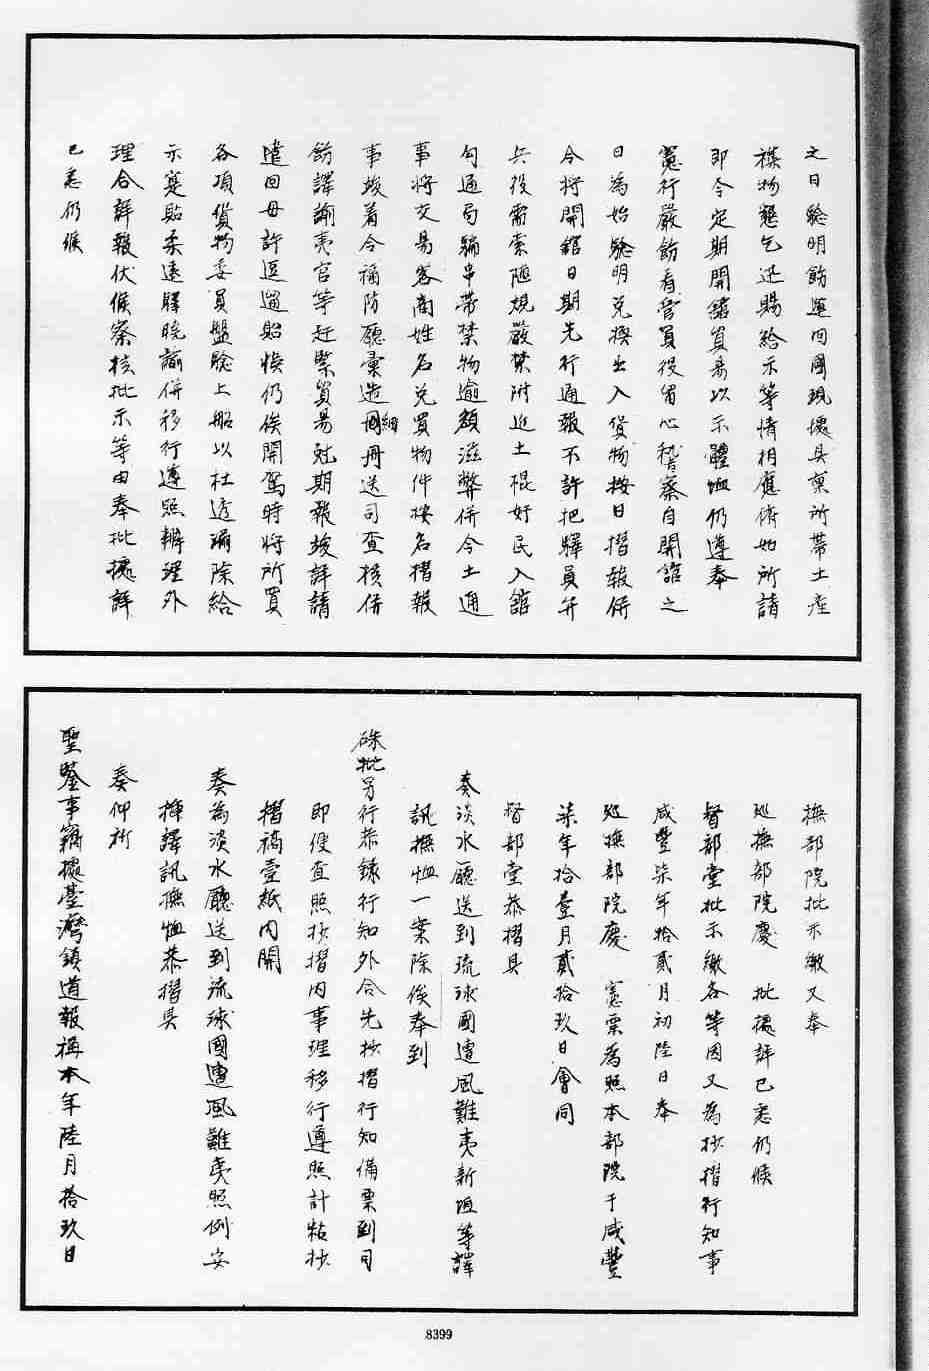 之日驗明飭遣回國現據具稟所帶土產
禖物懇乞迅賜給示等情相應備如所請
即今定期開館貿易以示體恤仍遵奉
憲行嚴飭看管員役留心稽察自開館之
日為始驗明兌換出入貨物按日摺報併
令將開館日期先行通報不許把驛員弁
兵役需索陋規嚴禁附近土棍奸民入館
勾通局騙串帶禁物逾額滋弊併令土通
事將交易客商姓名兌買物件按名摺報
事竣着令福防廳彙造細冊送司查核併
飭譯諭夷官等赶緊貿易尅期報竣詳請
遣回毋許逗遛貽悞仍俟開駕時將所買
各項貨物委員盤驗上船以杜透漏除給
示寔貼柔遠驛曉諭併移行遵照辦理外
理合詳報伏候察核批示等由奉批據詳
已悉仍候
撫部院批示繳又奉
巡撫部院慶 批據詳已悉仍候
督部堂批示繳各等因又為抄摺行知事
咸豐柒年拾貳月初陸日奉
巡撫部院慶 憲票為照本部院于咸豐
柒年拾壹月貳拾玖日會同
督部堂恭摺具
奏淡水廳送到琉球國遭風難夷新垣等譯
訊撫恤一案除俟奉到
硃批另行恭錄行知外合先抄摺行知備票到司
即便查照抄摺內事理移行遵照計粘抄
摺稿壹紙內開
奏為淡水廳送到流球國遭風難夷照例安
揷譯訊撫恤恭摺具
奏仰祈
聖鑒事竊據臺灣鎮道報稱本年陸月拾玖日
8399